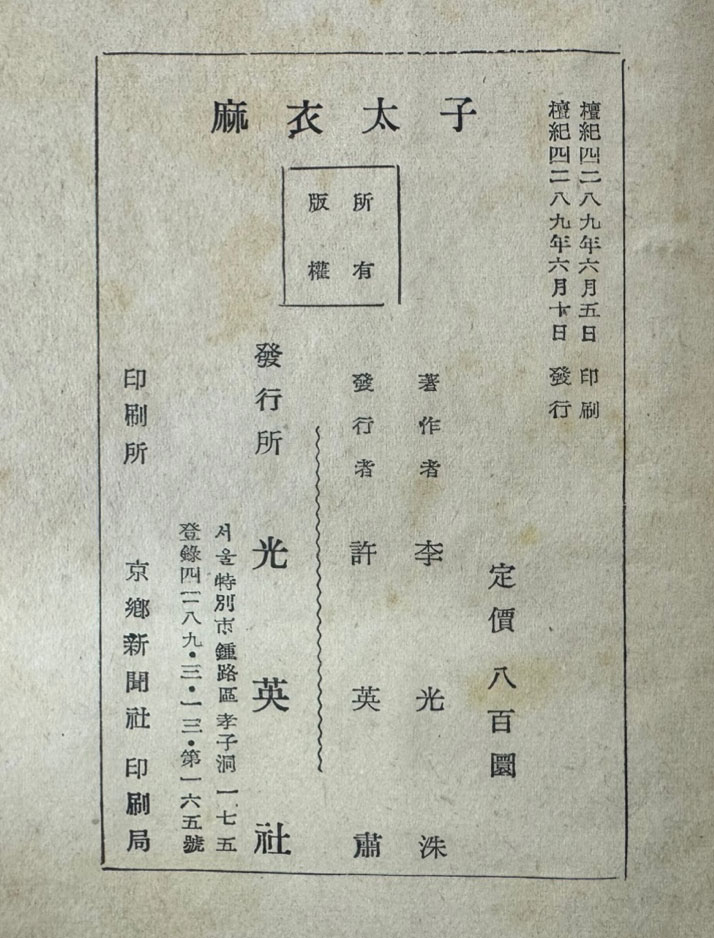 麻衣太子
版權所有
檀紀四二八九年六月五日 印刷
檀紀四二八九年六月十日 發行
定價 八百圜
著作者 李光洙
發行者 許英肅
發行所 光英社
서울特別市鍾路區孝子洞一七五
登錄四二八九・三・一三・第一六五號
印刷所 京鄕新聞社 印刷局